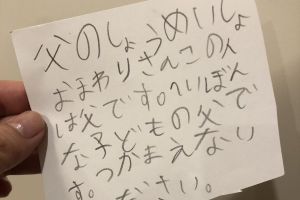 父のしょうめいしょ
おまわりさんこの人
は父です。へいぼん
な子どもの父で
す。つかまえない
なさい。